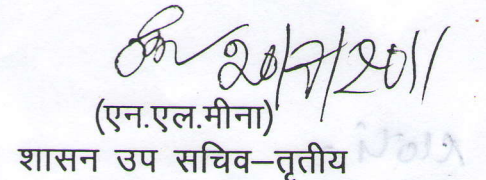 20/7/2011
(एन.एल.मीना)
शासन उप सचिव–तृतीय